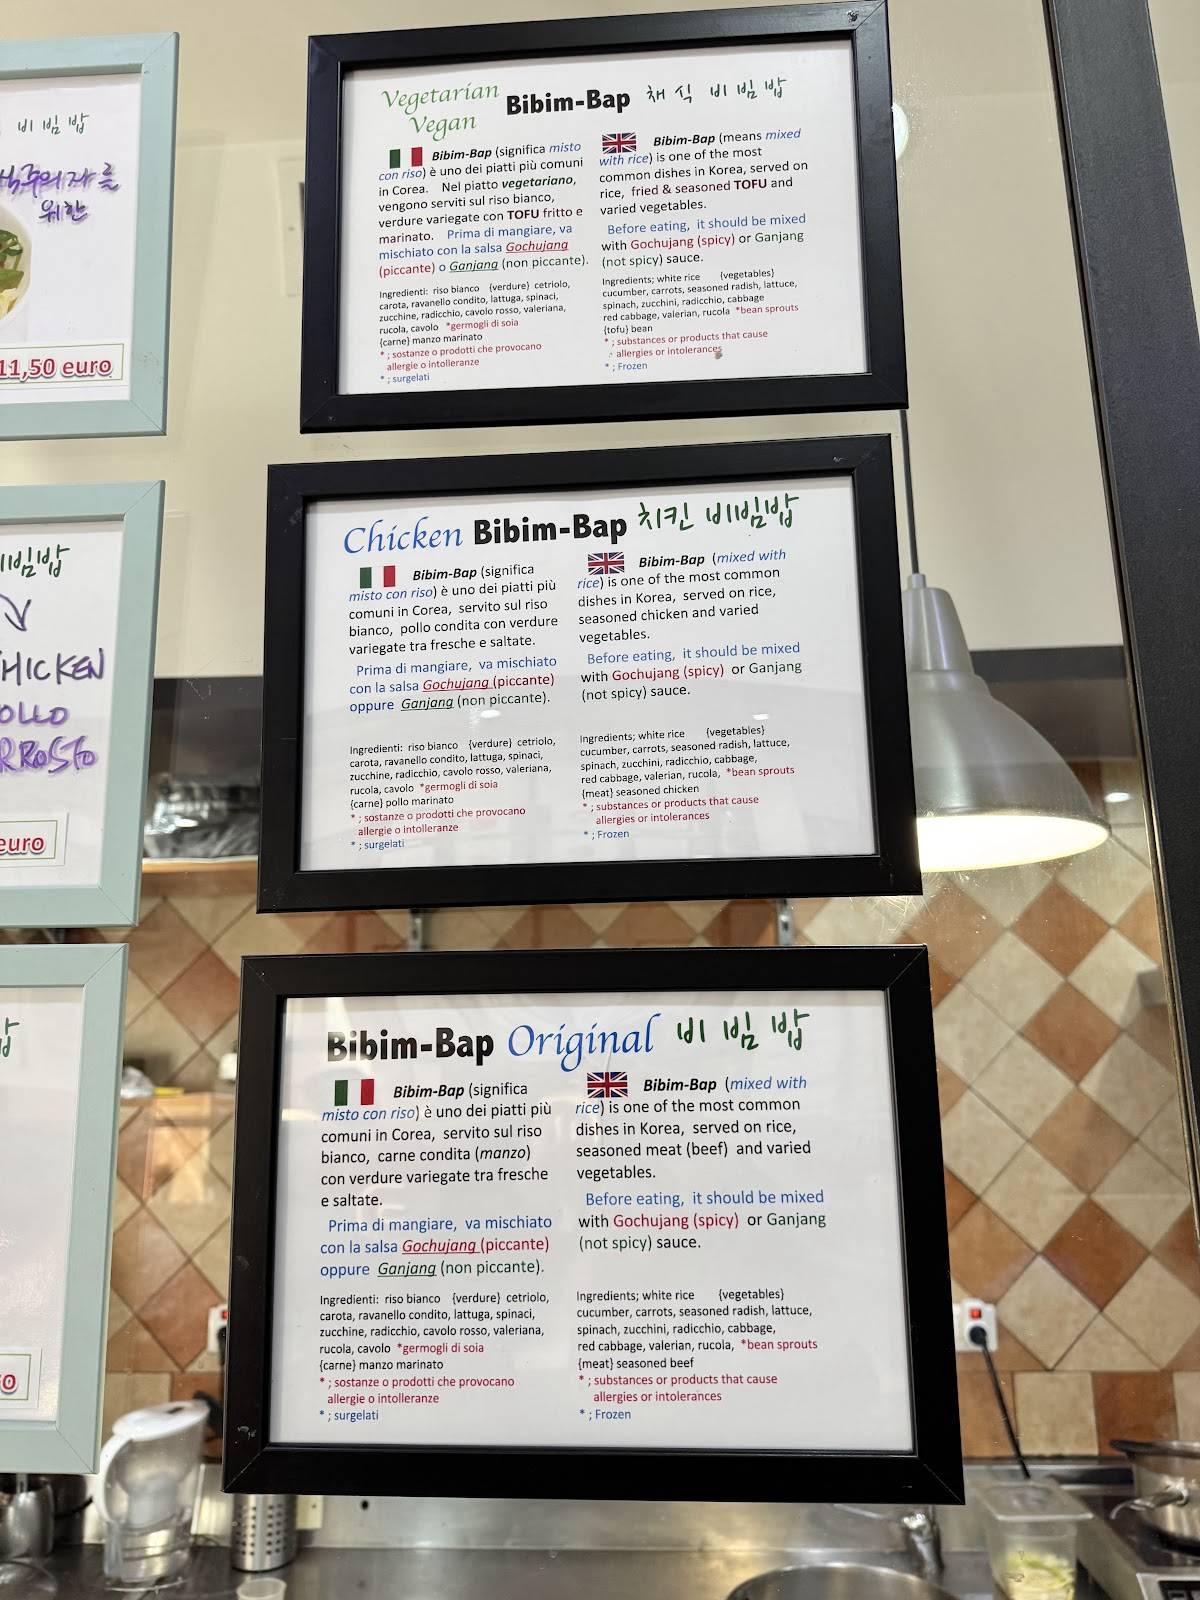 비 빔 밥
식주의자를
위한
11,50 euro
비빔밥
CHICKEN
POLLO
ARROSTO
euro
밥
Vegetarian
Vegan
Bibim-Bap 채 식 비 빔 밥
Bibim-Bap (significa misto
con riso) è uno dei piatti più comuni
in Corea. Nel piatto vegetariano,
vengono serviti sul riso bianco,
verdure variegate con TOFU fritto e
marinato. Prima di mangiare, va
mischiato con la salsa Gochujang
(piccante) o Ganjang (non piccante).
Ingredienti: riso bianco {verdure} cetriolo,
carota, ravanello condito, lattuga, spinaci,
zucchine, radicchio, cavolo rosso, valeriana,
rucola, cavolo *germogli di soia
{carne} manzo marinato
* ; sostanze o prodotti che provocano
allergie o intolleranze
* ; surgelati
Bibim-Bap (means mixed
with rice) is one of the most
common dishes in Korea, served on
rice, fried & seasoned TOFU and
varied vegetables.
Before eating, it should be mixed
with Gochujang (spicy) or Ganjang
(not spicy) sauce.
Ingredients; white rice {vegetables}
cucumber, carrots, seasoned radish, lattuce,
spinach, zucchini, radicchio, cabbage
red cabbage, valerian, rucola *bean sprouts
{tofu} bean
* ; substances or products that cause
allergies or intolerances
* ; Frozen
Chicken Bibim-Bap 치킨 비빔밥
Bibim-Bap (significa
misto con riso) è uno dei piatti più
comuni in Corea, servito sul riso
bianco, pollo condita con verdure
variegate tra fresche e saltate.
Prima di mangiare, va mischiato
con la salsa Gochujang (piccante)
oppure Ganjang (non piccante).
Ingredienti: riso bianco {verdure} cetriolo,
carota, ravanello condito, lattuga, spinaci,
zucchine, radicchio, cavolo rosso, valeriana,
rucola, cavolo *germogli di soia
{carne} pollo marinato
* ; sostanze o prodotti che provocano
allergie o intolleranze
* ; surgelati
Bibim-Bap (mixed with
rice) is one of the most common
dishes in Korea, served on rice,
seasoned chicken and varied
vegetables.
Before eating, it should be mixed
with Gochujang (spicy) or Ganjang
(not spicy) sauce.
Ingredients; white rice {vegetables}
cucumber, carrots, seasoned radish, lattuce,
spinach, zucchini, radicchio, cabbage,
red cabbage, valerian, rucola, *bean sprouts
{meat} seasoned chicken
* ; substances or products that cause
allergies or intolerances
* ; Frozen
Bibim-Bap Original 비 빔 밥
Bibim-Bap (significa
misto con riso) è uno dei piatti più
comuni in Corea, servito sul riso
bianco, carne condita (manzo)
con verdure variegate tra fresche
e saltate.
Prima di mangiare, va mischiato
con la salsa Gochujang (piccante)
oppure Ganjang (non piccante).
Ingredienti: riso bianco {verdure} cetriolo,
carota, ravanello condito, lattuga, spinaci,
zucchine, radicchio, cavolo rosso, valeriana,
rucola, cavolo *germogli di soia
{carne} manzo marinato
* ; sostanze o prodotti che provocano
allergie o intolleranze
* ; surgelati
Bibim-Bap (mixed with
rice) is one of the most common
dishes in Korea, served on rice,
seasoned meat (beef) and varied
vegetables.
Before eating, it should be mixed
with Gochujang (spicy) or Ganjang
(not spicy) sauce.
Ingredients; white rice {vegetables}
cucumber, carrots, seasoned radish, lattuce,
spinach, zucchini, radicchio, cabbage,
red cabbage, valerian, rucola, *bean sprouts
{meat} seasoned beef
* ; substances or products that cause
allergies or intolerances
* ; Frozen